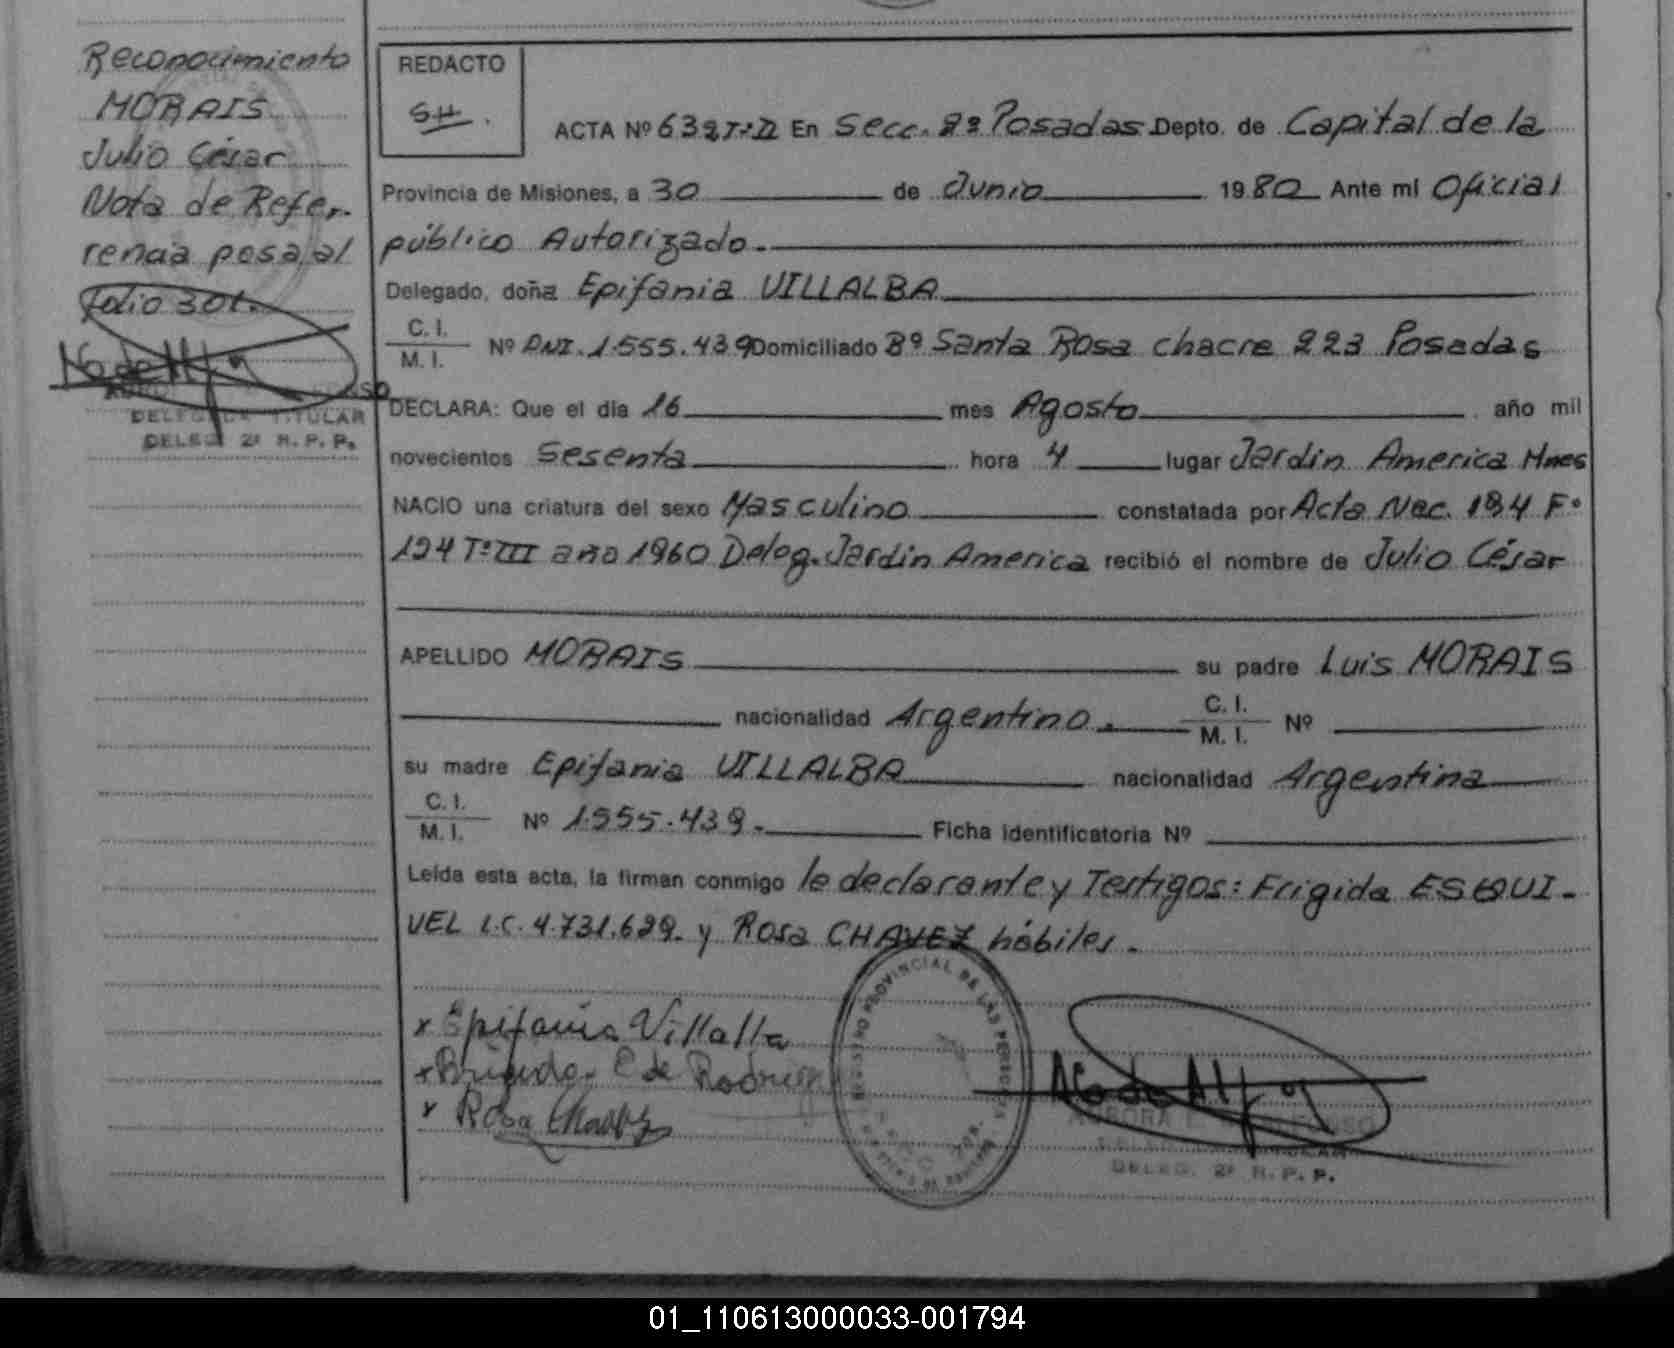 Reconocimiento
MORAIS
Julio César
Nota de Refer-
rencia pasa al
folio 301.
DELEGADA TITULAR
DELEG. 2ª R. P. P.
REDACTO
S.H.
ACTA Nº 632 Tº II En Secc. 2ª Posadas Depto. de Capital de la
Provincia de Misiones, a 30 de Junio 1980 Ante mí Oficial
público Autorizado.
Delegado, doña Epifania VILLALBA
C. I.
M. I. Nº DNI. 1.555.439 Domiciliado Bº Santa Rosa chacra 223 Posadas
DECLARA: Que el día 16 mes Agosto año mil
novecientos Sesenta hora 4 lugar Jardin America Mnes
NACIO una criatura del sexo Masculino constatada por Acta Nac. 194 Fº
194 Tº III año 1960 Deleg. Jardin America recibió el nombre de Julio César
APELLIDO MORAIS su padre Luis MORAIS
nacionalidad Argentino. C. I.
M. I. Nº
su madre Epifania VILLALBA nacionalidad Argentina
C. I.
M. I. Nº 1.555.439. Ficha identificatoria Nº
Leída esta acta, la firman conmigo la declarante y Testigos: Frigida ESQUI-
VEL L.C. 4.731.629. y Rosa CHAVEZ hábiles.
x Epifania Villalba
x Brigida E de Rodrig
x Rosa Chavez
REGISTRO PROVINCIAL DE LAS PERSONAS
DELEG. 2ª R. P. P.
01_110613000033-001794